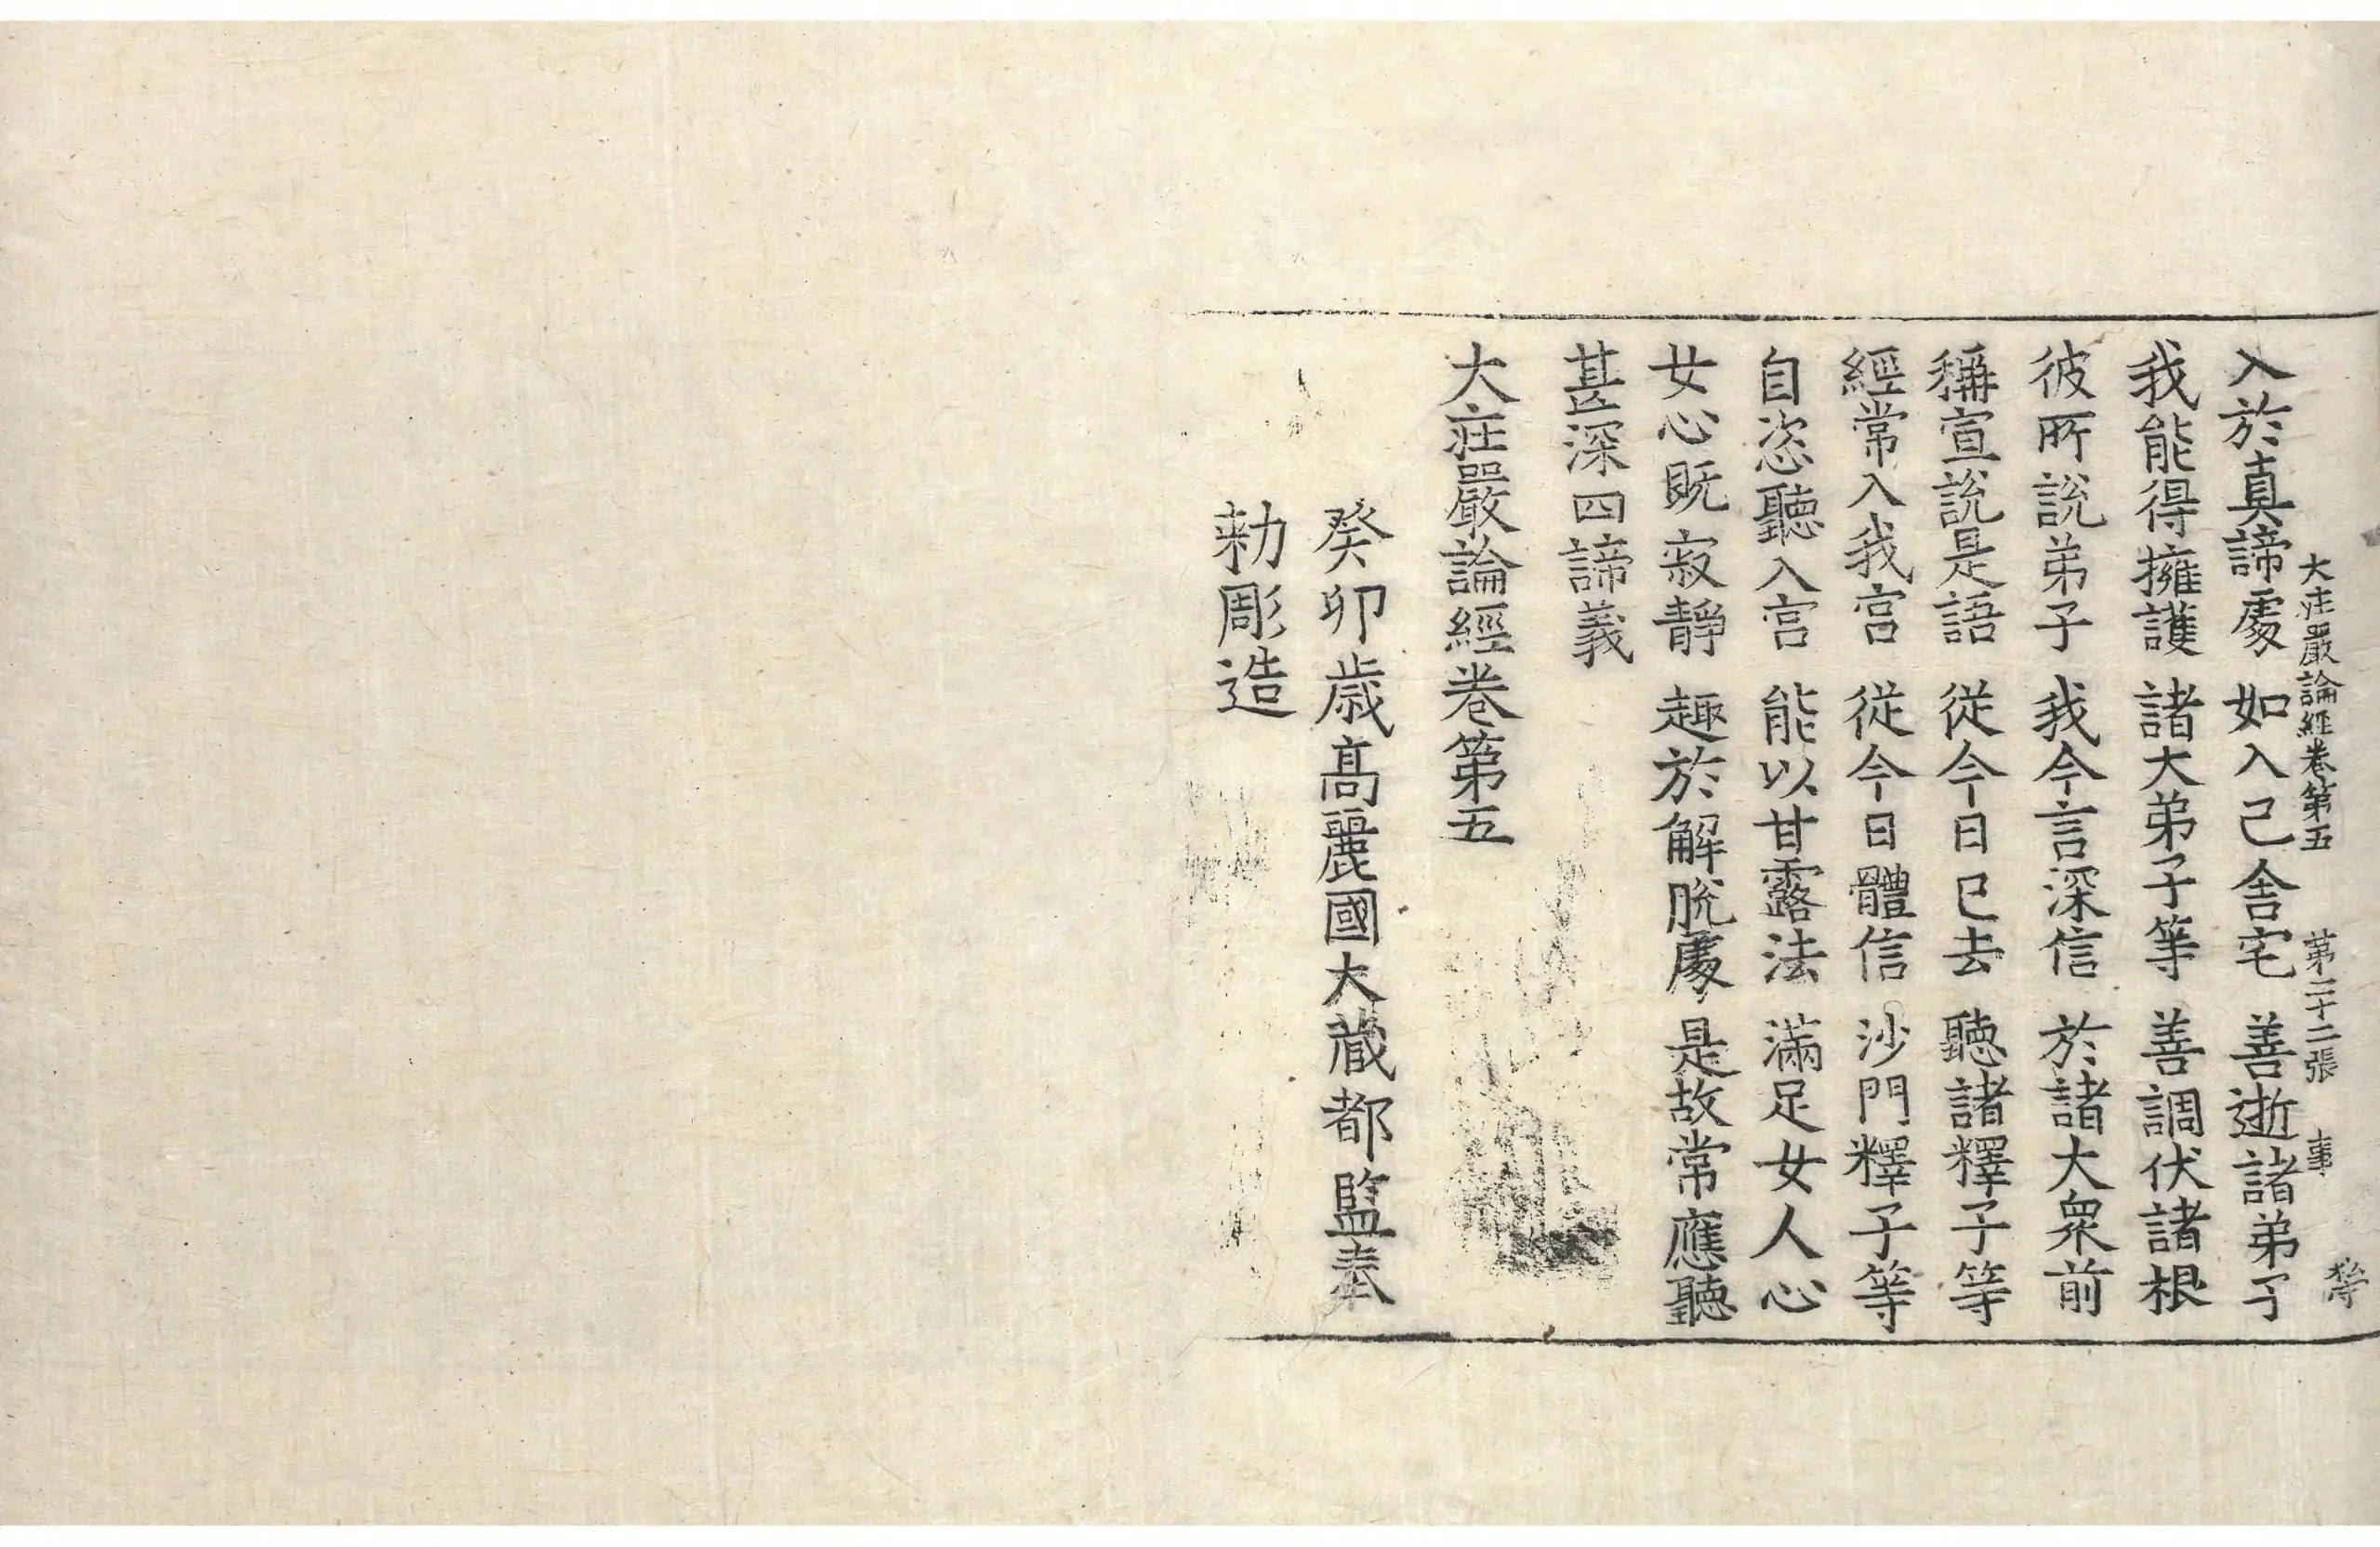 大荘嚴論經卷第五 第二十二張 事
入於真諦處 如入己舍宅 善逝諸弟子
我能得擁護 諸大弟子等 善調伏諸根
彼所說弟子 我今言深信 於諸大衆前
稱宣說是語 從今日已去 聽諸釋子等
經常入我宮 從今日體信 沙門釋子等
自恣聽入宮 能以甘露法 滿足女人心
女心既寂靜 趣於解脫處 是故常應聽
甚深四諦義
大荘嚴論經卷第五
癸卯歲高麗國大藏都監奉
勅彫造